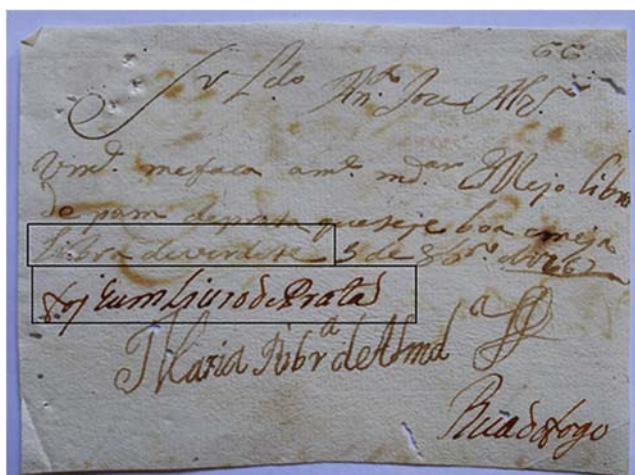 66
Sr Ldo Anto Joze Alvz
Vmd. me faca a md.
de pam de prata que seje boa e meja
Libra de verdete 3 de 8bro de 1766
foj eum Liuro de Pratad
Maria Ribra de Almda
Rua do fogo